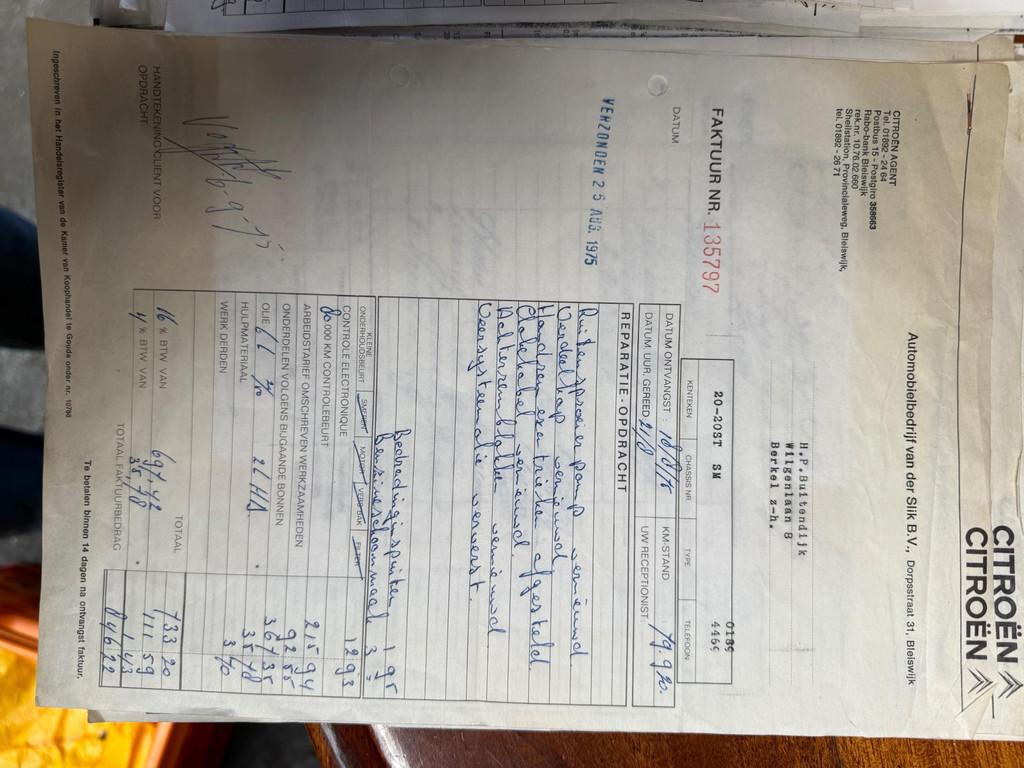 CITROËN
CITROËN
Automobielbedrijf van der Slik B.V., Dorpsstraat 31, Bleiswijk
CITROËN AGENT
Tel. 01892 - 24 64
Postbus 15 - Postgiro 358663
Rabo-bank Bleiswijk
rek.nr. 10.76.02.660
Shellstation, Provincialeweg, Bleiswijk,
tel. 01892 - 26 71
H.P.Buitendijk
Wilgenlaan 8
Berkel z-h.
FAKTUUR NR. 135797
0189
20-20ST SM 4469
KENTEKEN CHASSIS NR TYPE TELEFOON
DATUM
DATUM ONTVANGST : 18/8/75 KM-STAND 79.920.
DATUM UUR GEREED 21/8 UW RECEPTIONIST
VERZONDEN 25 AUG. 1975
REPARATIE-OPDRACHT
Ruitensproeier pomp vernieuwd.
Verdeelkap vernieuwd.
Handrem excentrieken afgesteld.
vernieuwd.
Achterremblokken vernieuwd
Veersysteemolie ververst.
Bedradingspuiten 1 95
3
KLEINE ONDERHOUDSBEURT SMEREN MOTOR VERSNBAK FILTER
CONTROLE ELECTRONIQUE 12 93
80 000 KM CONTROLEBEURT
ARBEIDSTARIEF OMSCHREVEN WERKZAAMHEDEN 215 94
ONDERDELEN VOLGENS BIJGAANDE BONNEN
OLIE 6 L 2 L HS. 35
HULPMATERIAAL 35 48
WERK DERDEN 3 70
TOTAAL 733 20
16 % BTW VAN 697,42 111 59
4 % BTW VAN 35,78 1 43
TOTAAL FAKTUURBEDRAG 846 22
HANDTEKENING CLIENT VOOR
OPDRACHT
Te betalen binnen 14 dagen na ontvangst faktuur.
Ingeschreven in het Handelsregister van de Kamer van Koophandel te Gouda onder nr. 10760